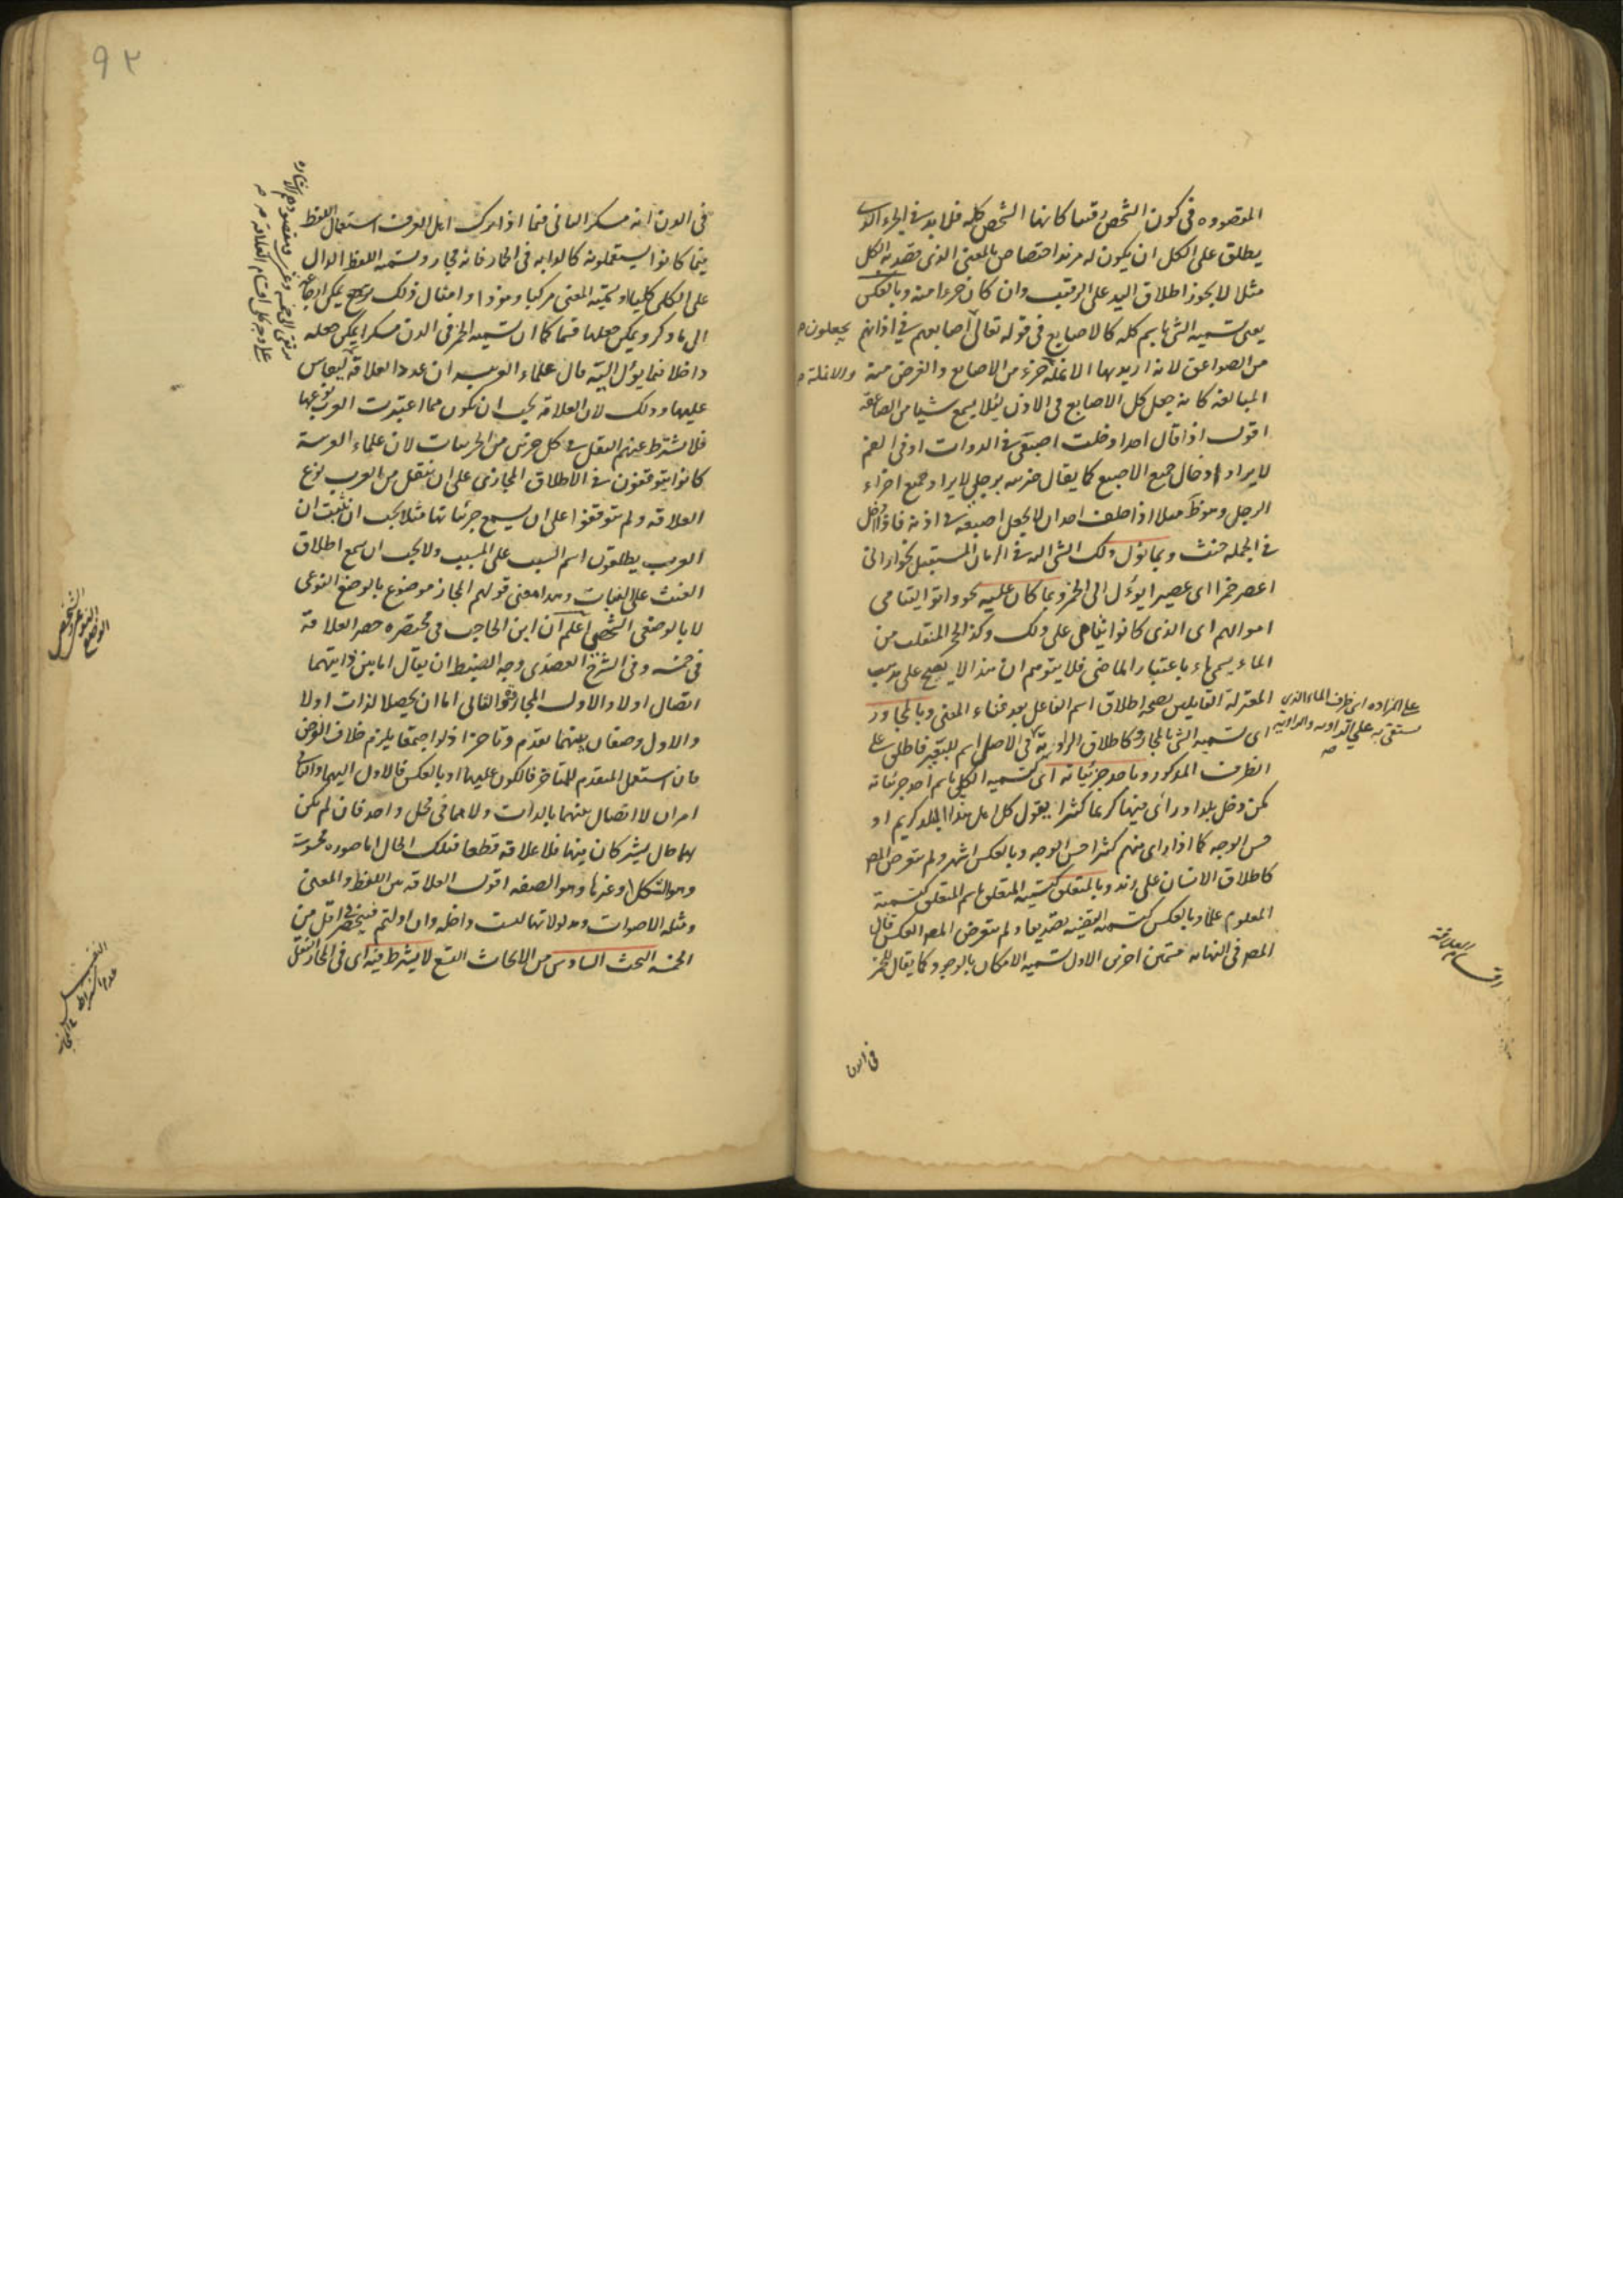 المقصوده فى كون الشخص رقيبا كانها الشخص كله فلا بد فى الجزء الذى
يطلق على الكل ان يكون له مزيد اختصاص بالمعنى الذى قصد به الكل
مثلا لا يجوز اطلاق اليد على الرقيب وان كان جزءا منه وبالعكس
يعنى تسميه الشئ باسم كله كالاصابع فى قوله تعالى اصابعهم فى اذانهم
يجعلون
من الصواعق لانه اريد بها الانملة جزء من الاصابع والغرض منه
والانملة
المبالغه كانه جعل كل الاصابع فى الاذن لئلا يسمع شيئا من الصاعقه
اقول اذا قال احد ادخلت اصبعى فى الدوات او فى الفم
لا يراد ادخال جميع الاصبع كما يقال ضربته برجلى لا يراد جميع اجزاء
الرجل وهو ظ مثلا اذا حلف احد ان لا يجعل اصبعه فى اذنه فاذا ادخل
فى الجمله حنث وبما يؤل ذلك الشئ اليه فى الزمان المستقبل نحو ارانى
اعصر خمرا اى عصيرا يؤل الى الخمر وبما كان عليه نحو واتوا اليتامى
اموالهم اى الذى كانوا يتامى على ذلك وكذ الحجر المنقلب من
الماء يسمى ماء باعتبار الماضى فلا يتوهم ان هذا لا يصح على مذهب
المعتزلة القايلين بصحه اطلاق اسم الفاعل بعد فناء المعنى وبالمجاور
على المزاده اى ظرف الماء الذى
يستقى به على الدابه والراويه
اى تسميه الشئ بالمجاور كاطلاق الراويه فى الاصل اسم للبعير فاطلق على
الظرف المذكور وباحد جزئياته اى تسميه الكلى باسم احد جزئياته
كمن دخل بلدا وراى فيها كريما كثيرا يقول كل اهل هذا البلد كريم او
حسن الوجه كما اذا راى منهم كثيرا حسن الوجه وبالعكس اشهر ولم يتعرض المص
كاطلاق الانسان على زيد وبالمتعلق كتسميه المتعلق باسم المتعلق كتسمية
المعلوم علما وبالعكس كتسميه القضيه تصديقا ولم يتعرض المص العكس قال
المص فى النهايه قسمين اخرين الاول تسميه الامكان بالوجود كما يقال للخمر
فى الدن
٩٢
فى الدن انه مسكر الثانى فيما اذا ترك اهل العرف استعمال اللفظ
فيما كانوا يستعملونه كالدابه فى الحمار فانه مجاز وتسميه اللفظ الدال
على الكلى كليا وتسميه المعنى مركبا ومفردا وامثال ذلك يرجع يمكن ارجاعه
الى ما ذكر ويمكن جعلها قسما كما ان تسميه الخمر فى الدن مسكرا يمكن جعله
داخلا فيما يؤل اليه قال علماء العربيه ان عدد العلاقة ليقاس
عليها وذلك لان العلاقه يجب ان يكون مما اعتبرت العرب نوعها
فلا يشترط عندهم النقل فى كل جزئى من الجزئيات لان علماء العربية
كانوا يتوقفون فى الاطلاق المجازى على ان ينقل من العرب نوع
العلاقه ولم يتوقفوا على ان يسمع جزئياتها مثلا يجب ان يثبت ان
العرب يطلقون اسم السبب على المسبب ولا يجب ان يسمع اطلاق
الغيث على النبات وهذا معنى قولهم المجاز موضوع بالوضع النوعى
لا بالوضع الشخصى اعلم ان ابن الحاجب فى مختصره حصر العلاقه
فى خمسه وفى الشرح العضدى وجه الضبط ان يقال اما بين ذاتيهما
اتصال اولا والاول المجاوره والثانى اما ان يحصلا لذات اولا
والاول وصفان بينهما تقدم وتاخر اذ لو اجتمعا يلزم خلاف الفرض
فان استعمل المتقدم للمتاخر فالكون عليها او بالعكس فالاول اليها والثانى
امران لا اتصال بينهما بالذات ولا هما فى محل واحد فان لم يكن
لهما حال يشتركان فيها فلا علاقه قطعا فتلك الحال اما صوره محسوسة
وهو الشكل او غيرها وهو الصفه اقول العلاقه بين اللفظ والمعنى
ومثله الاصوات ومدلولاتها ليست داخله وان اولتم فينحصر فى اقل من
الخمسه البحث السادس من الابحاث التسع لا يشترط فيه اى فى المجاز النقل
الوضع النوعى والشخصى